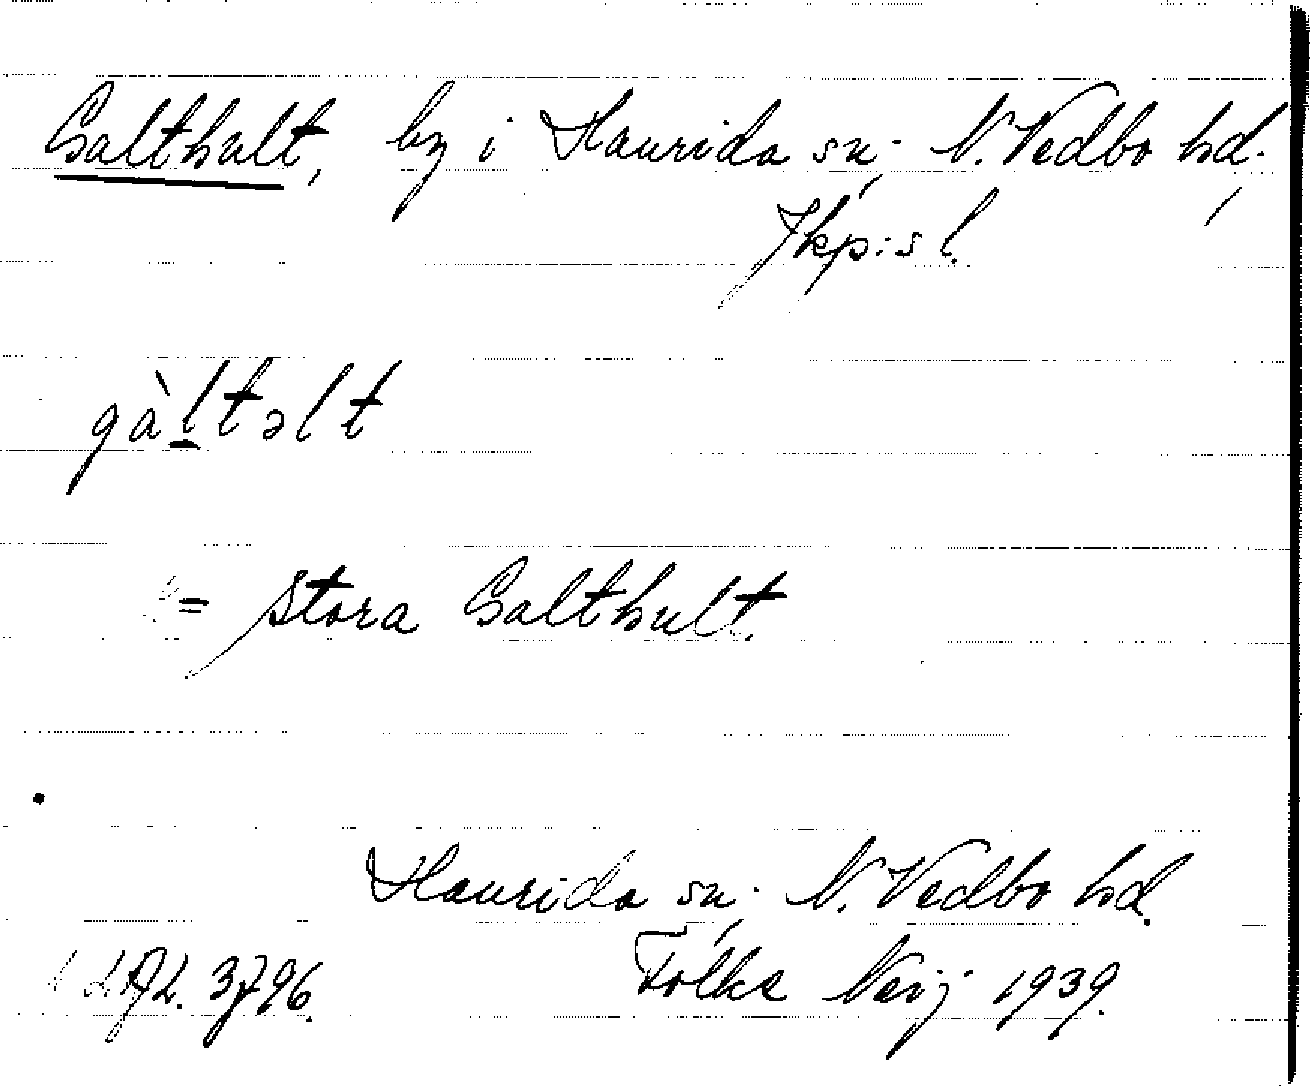 Galthult, by i Haurida sn. N. Vedbo hd.
Jkp:s l.
gàltəlt
= Stora Galthult.
Haurida sn. N. Vedbo hd.
3796. Folke Neij 1939.